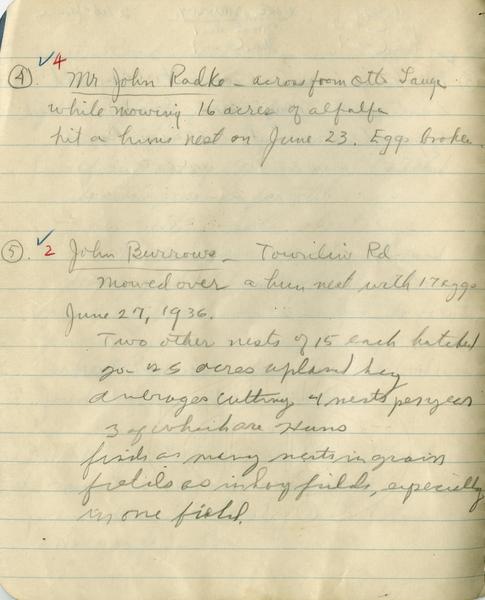 ✓4
④. Mr John Radke - across from Otto
while mowing 16 acres of alfalfa
hit a huns nest on June 23. Eggs broken
✓2
⑤. John Burrows - Townline Rd
Mowed over a hun nest with 17 eggs
June 27, 1936.
Two other nests of 15 each hatched
on 25 acres upland hay
averages cutting 4 nests per year
3 of which are Huns
finds as many nests in grain
fields as in hay fields, especially
in one field.